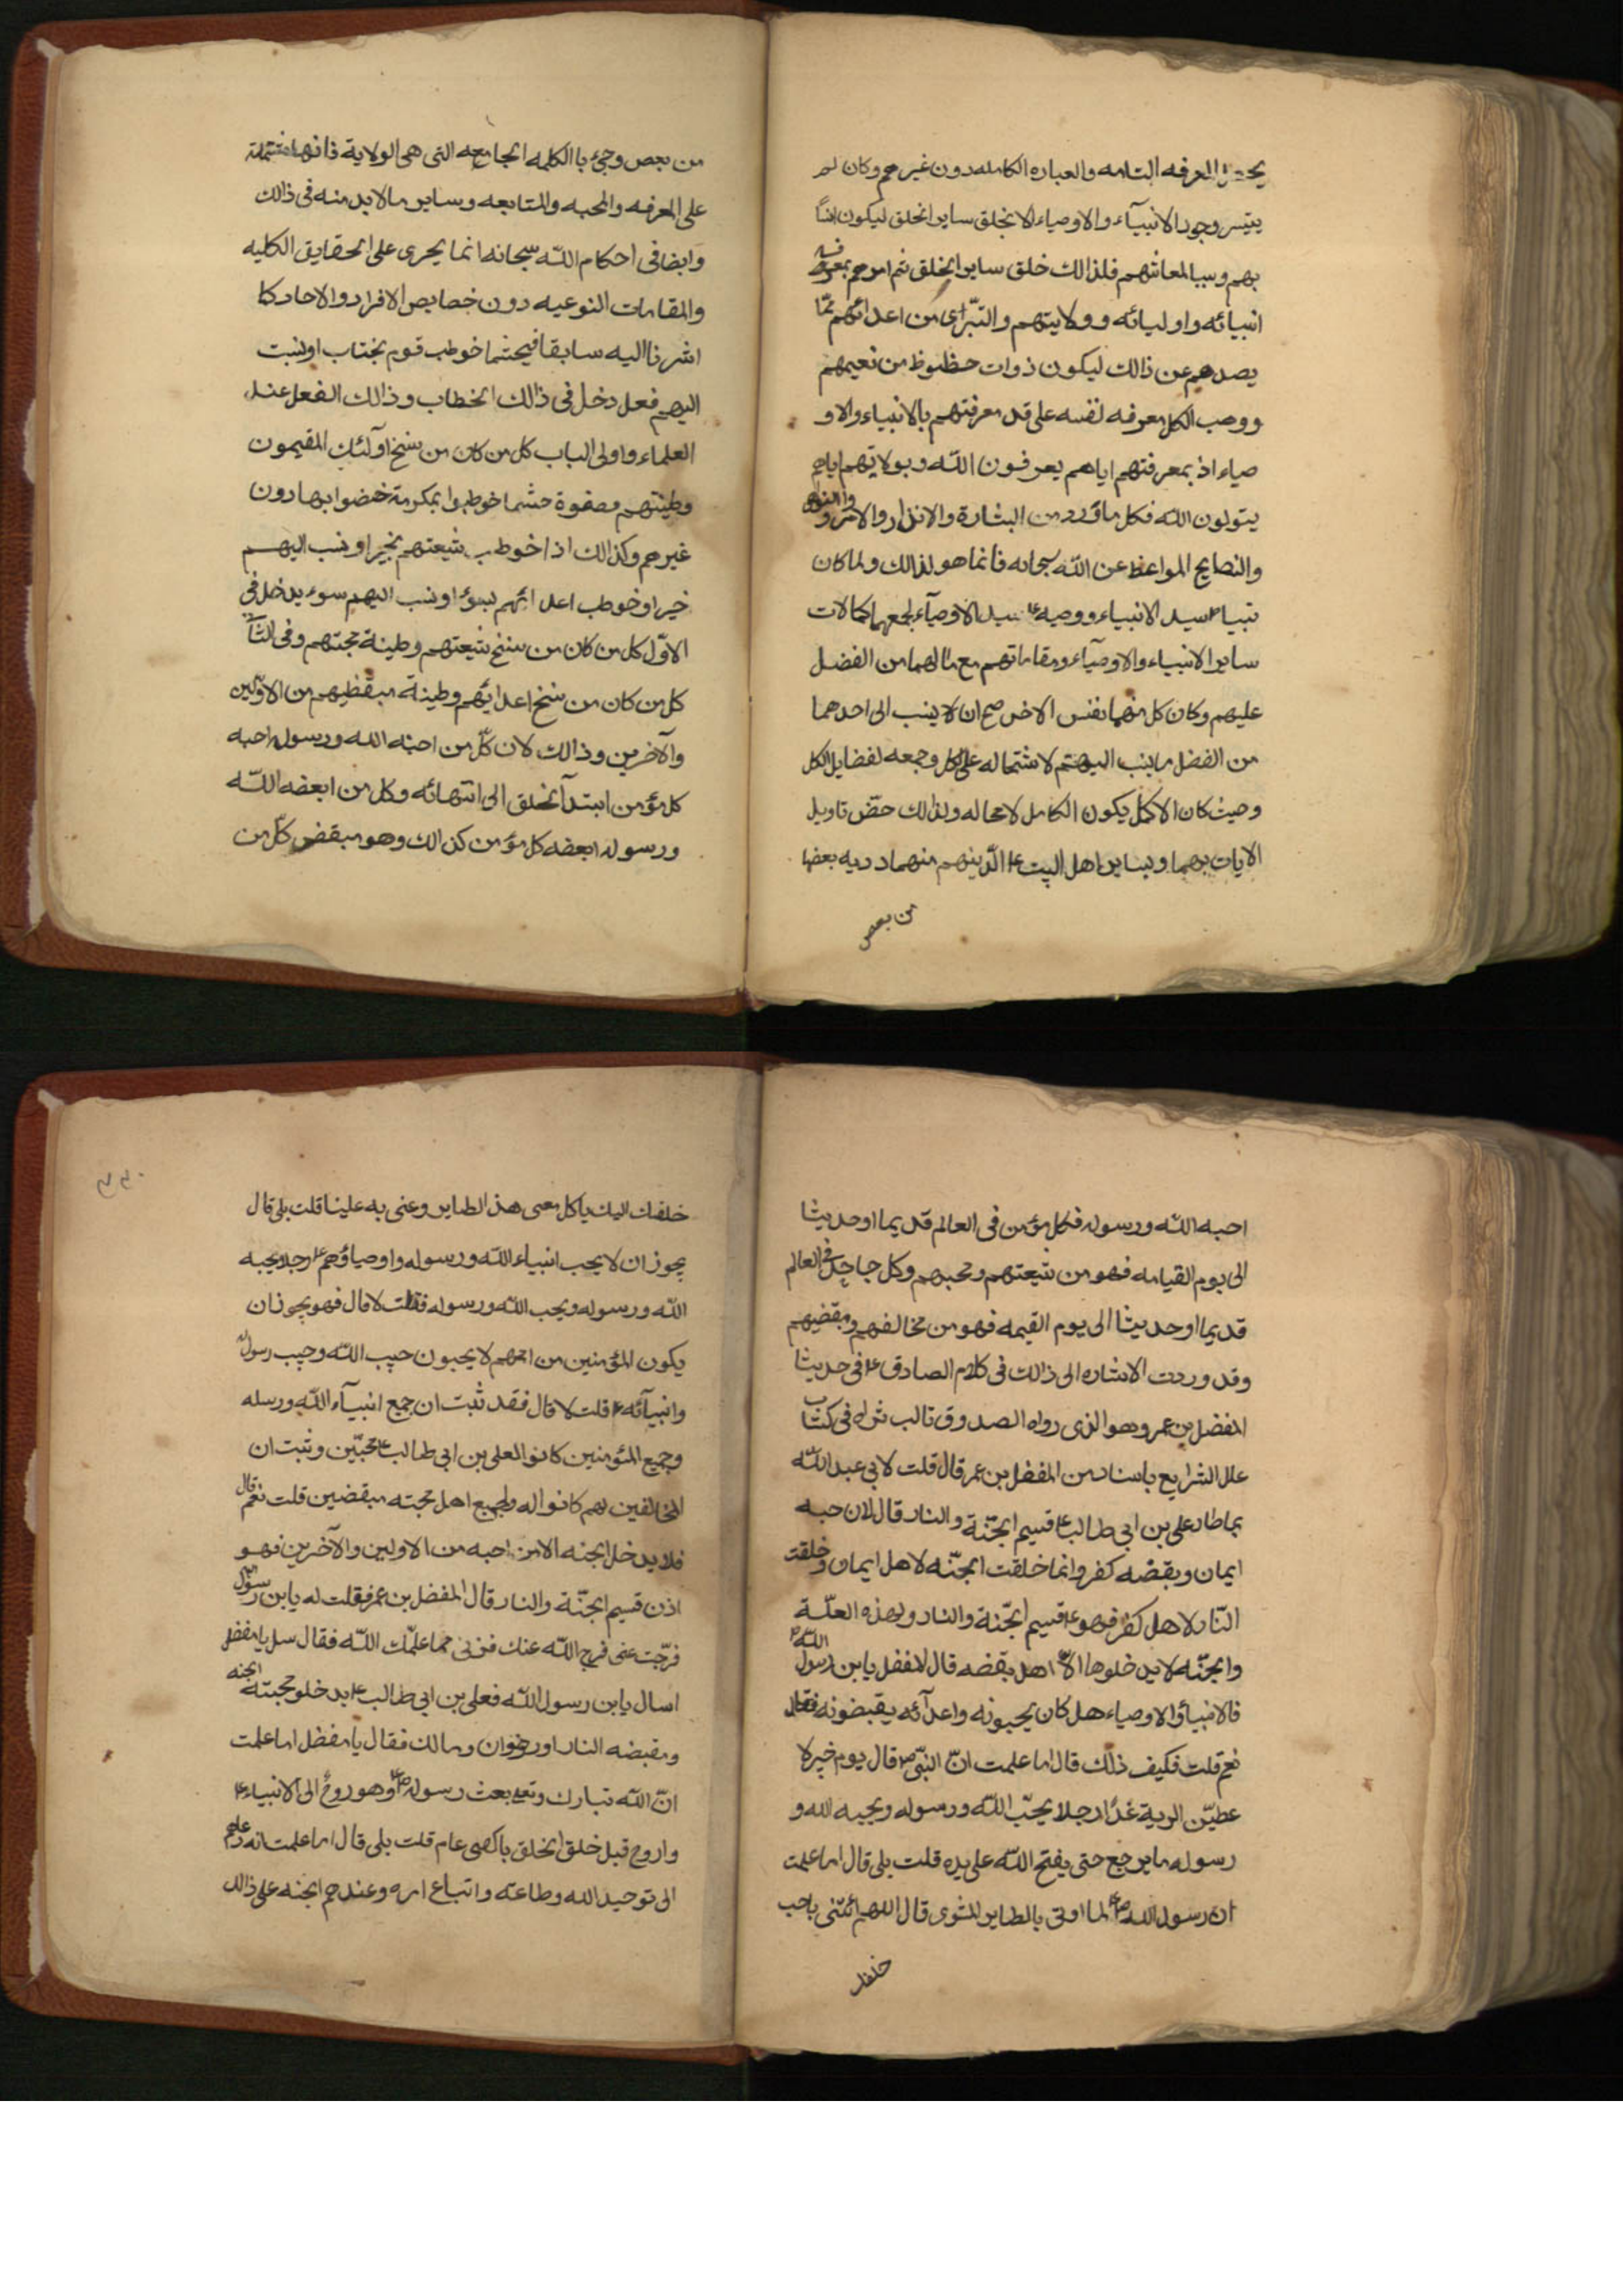 المعرفه التامه والعباره الكامله دون غيرهم وكان لم
يتيسر وجود الانبيآء والاوصياء الا بخلق ساير الخلق ليكون انساً
بهم وسببا لمعاشهم فلذالك خلق ساير الخلق ثم امرهم بمعرفه
انبيائه واوليائه وولايتهم والتبرّاى من اعدائهم ممّا
يصدهم عن ذالك ليكون ذوات حظوظ من نعيمهم
ووهب الكل معرفه نفسه على قد معرفتهم بالانبياء والاو
صياء اذ بمعرفتهم اياهم يعرفون اللّه وبولايتهم اياهم
يتولون اللّه فكل ما ورد من البشارة والانذار والامر و والنواهى
والنصايح المواعظ عن اللّه سبحانه فانما هو لذالك ولما كان
نبيناص سيد الانبياء ووصيهع سيد الاوصيآء لجمعهما كمالات
ساير الانبياء والاوصيآء ومقاماتهم مع مالهما من الفضل
عليهم وكان كل منهما نفس الاخر صح ان لا ينسب الى احدهما
من الفضل ما ينسب اليهم لاشتماله على الكل وجمعه لفضايل الكل
وحيث كان الاكمل يكون الكامل لا محاله ولذالك خصّ تاويل
الايات بهما وبساير اهل البيت ع الّذينهم منهما دريه بعضها
من بعص
من بعص وجئ باالكلمه الجامعه التى هى الولاية فانها مشتملة
على المعرفه والمحبه والمتابعه وساير مالابد منه فى ذالك
وايضا فى احكام اللّه سبحانه انما يجرى على الحقايق الكليه
والمقامات النوعيه دون خصايص الافراد والاحاد كما
اشرنا اليه سابقا فيحثما خوطب قوم بختاب او نسبت
اليهم فعل دخل فى ذالك الخطاب وذالك الفعل عند
العلماء واولى الباب كل من كان من سنخ اولئك المقيمون
وطينتهم وصفوة حشما خوطبوا بمكرمة خصوا بها دون
غيرهم وكذالك اذا خوطب شيعتهم بخير او نسب اليهم
خير او خوطب اعدائهم بسوء او نسب اليهم سوء يدخل فى
الاوّل كل من كان من سنخ شيعتهم وطينة محبتهم وفى الثا
كل من كان من سنخ اعدائهم وطينة مبقظيهم من الاوّلين
والآخرين وذالك لان كلّ من احبه الله ورسوله احبه
كل مؤمن ابتدآ الخلق الى انتهائه وكل من ابعضه اللّه
ورسوله ابعضه كل مؤمن كذالك وهو مبقض كلّ من
احبه اللّه ورسوله فكل مؤمن فى العالم قديما او حديثا
الى يوم القيامه فهو من شيعتهم ومحبهم وكل جاحد فى العالم
قديما او حديثا الى يوم القيمه فهو من مخالفهم ومبقضيهم
وقد وردت الاشاره الى ذالك فى كلام الصادق ع فى حديثا
المفضل بن عمر وهو الذى رواه الصدوق تالب ثراه فى كتاب
علل الشرايع باسناده من المفضل بن عمر قال قلت لابى عبد اللّه
بما صار على بن ابى طالبع قسيم الجنّة والنار قال لان حبه
ايمان وبقضه كفر وانما خلقت الجنّه لاهل ايمان وخلقت
النّار لاهل كفر فهوع قسيم الجنّة والنار ولهذه العلّة
والجنّه لا يدخلوها الا اهل بقضه قال المفضل يابن رسول اللّه
فالانبياؤ الاوصياء هل كان يحبونه واعدآئه يقبضونه فقال
نعم قلت فكيف ذلك قال اما علمت انّ النبّى ص قال يوم خيبر لا
عطيّن الرية غدًا رجلا يحبّ اللّه ورسوله ويحبه الله و
رسوله ما يرجع حتى يفتح اللّه على يده قلت بلى قال اما علمت
ان رسول الله لما اوتى بالطاير المشوى قال اللهم ائتنى باحب
خلفك
خلفك اليك ياكل معى هذ الطاير وعنى به عليا قلت بلى قال
يجوز ان لا يحب انبياء اللّه ورسوله واوصياؤهمع رجلا يحبه
اللّه ورسوله ويحب اللّه ورسوله فقلت لا قال فهو يجوز ان
يكون المؤمنين من اممهم لا يحبون حبيب اللّه وحبيب رسوله
وانبيآئه ع قلت لا قال فقد ثبت ان جمع انبيآء اللّه ورسله
وجميع المئومنين كانوا لعلى بن ابى طالبع محبّين وثبت ان
المخالفين لهم كانوا له ولجميع اهل محبته مبقضين قلت نعم قال
فلا يدخل الجنه الا من احبه من الاولين والآخرين فهو
اذن قسيم الجنّة والنار قال المفضل بن عمر فقلت له يابن رسول
فرّجت عنى فرج اللّه عنك فزنى مما علمّك اللّه فقال سل يا مفضل
اسال يابن رسول اللّه فعلى بن ابى طالبع يدخلو محبته الجنه
ومقبضه النار او رضوان ومالك فقال يا مفضل اما علمت
انّ اللّه تبارك وتعه بعث رسوله وهو روحُ الى الانبياءع
واروح قبل خلق الخلق بالفى عام قلت بلى قال اما علمت انه دعاهم
الى توحيد الله وطاعته واتباع امره وعندهم الجنه على ذالك